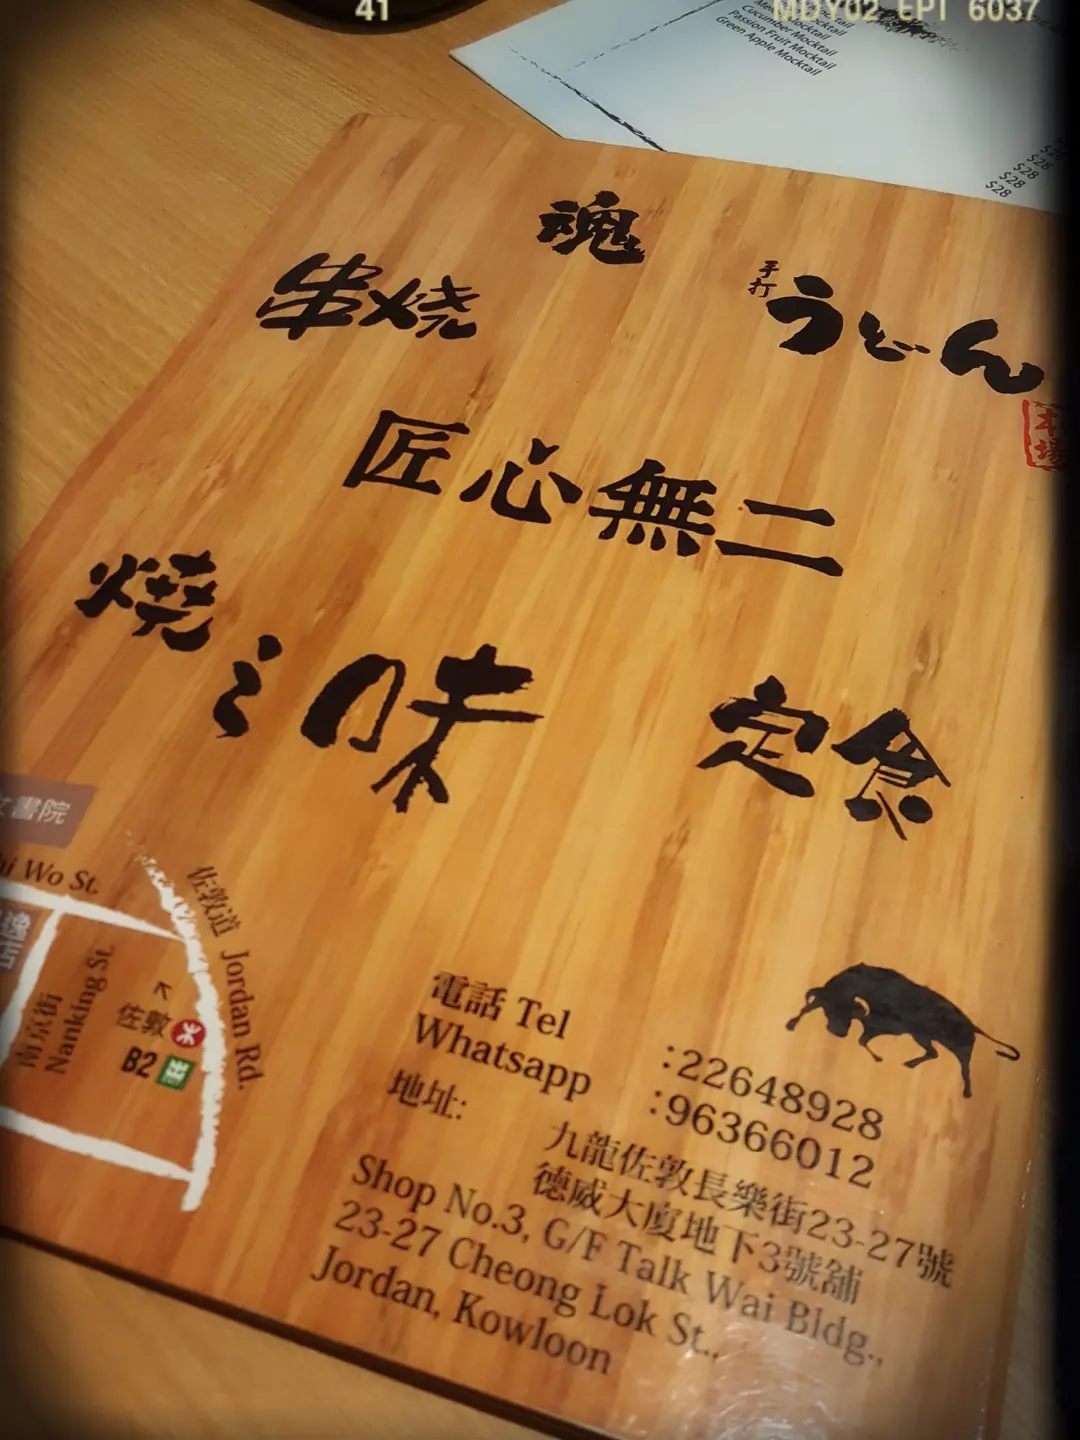 41
MDY02 EPT 6037
Cucumber Mocktail
Passion Fruit Mocktail
Green Apple Mocktail
$28
$28
$28
$28
魂
串焼
手打
うどん
本場
匠心無二
燒之味
定食
書院
Wo St.
佐敦道 Jordan Rd.
南京街
Nanking St.
佐敦
B2
電話 Tel :22648928
Whatsapp :96366012
地址:
九龍佐敦長樂街23-27號
德威大廈地下3號舖
Shop No.3, G/F Talk Wai Bldg.,
23-27 Cheong Lok St.,
Jordan, Kowloon